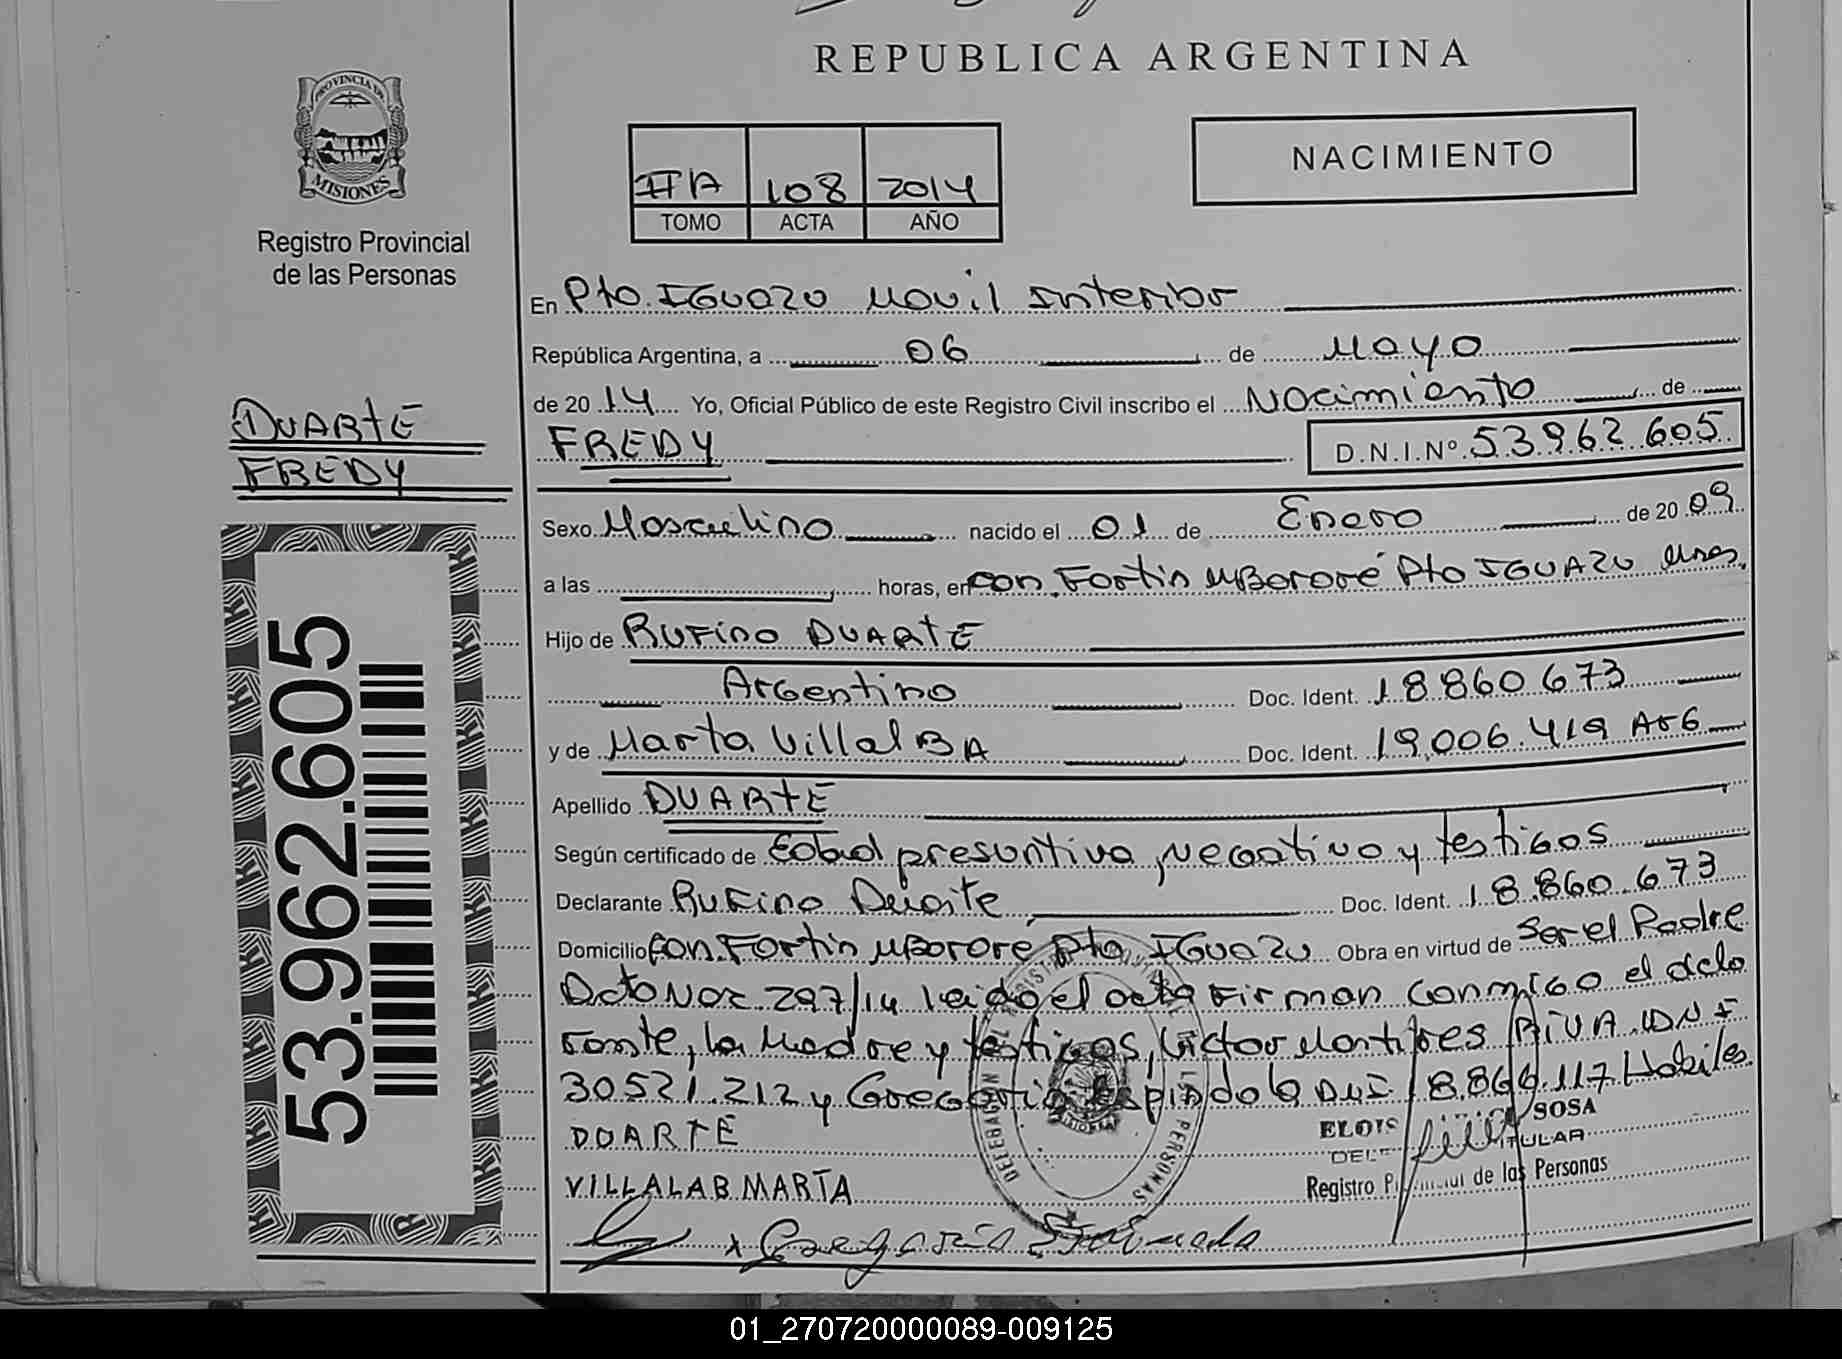 REPUBLICA ARGENTINA
PROVINCIA DE
MISIONES
Registro Provincial
de las Personas
IIA 108 2014
TOMO ACTA AÑO
NACIMIENTO
En Pto. IGUAZU Movil Interior
República Argentina, a 06 de Mayo
de 20 14 Yo, Oficial Público de este Registro Civil inscribo el Nacimiento de
DUARTE
FREDY
FREDY D.N.I.Nº 53.962.605
Sexo Masculino nacido el 01 de Enero de 20 09
a las horas, en Con. Fortin MBororé Pto IGUAZU Mnes.
Hijo de RUFino DUARTE
Argentino Doc. Ident. 18.860.673
y de Marta VillalBA Doc. Ident. 19.006.419 ArG
Apellido DUARTE
Según certificado de Edad presuntiva, Negativo y testigos
Declarante RUFino Duarte Doc. Ident. 18.860.673
Domicilio Con. Fortin MBororé Pto IGUAZU Obra en virtud de Ser el Padre
Dcto Nac 297/14 leido el acta Firman conmigo el dcla
rante, la Madre y testigos, Victor RIVA DNI
30521.212 y Gregorio Espindola DNI 18.866.117 Habiles
DUARTE
VILLALAB MARTA
SOSA
TITULAR
Registro Provincial de las Personas
53.962.605
01_270720000089-009125